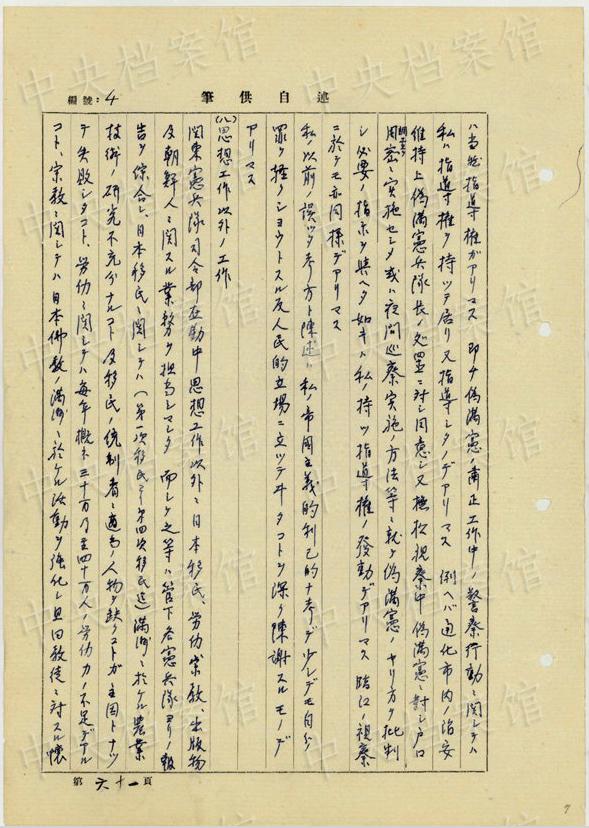 述自供筆
編號：4
ハ当然指導権ガアリマス 即チ偽満憲ノ粛正工作中ノ警察行動ニ関シテハ
私ハ指導権ヲ持ツテ居リ又指導シタノデアリマス 例ヘバ通化市内ノ治安
維持上偽満憲兵隊長ノ処置ニ対シ同意シ又 視察中偽満憲ニ対シ戸口
調査ヲ周密ニ実施セシメ或ハ夜間巡察実施ノ方法等ニ就テ偽満憲ノヤリ方ヲ批判
シ必要ノ指示ヲ与ヘタ如キハ私ノ持ツ指導権ノ発動デアリマス 臨江ノ視察
ニ於テモ亦同様デアリマス
私ノ以前ノ誤ツタ考方ト陳述ハ私ノ帝国主義的利己的ナ考デ少シデモ自分ノ
罪ヲ軽クシヨウトスル反人民的立場ニ立ツテヰタコトヲ深ク陳謝スルモノデ
アリマス
(八)思想工作以外ノ工作
関東憲兵隊司令部在勤中思想工作以外ニ日本移民、労働、宗教、出版物
及朝鮮人ニ関スル業務ヲ担当シマシタ 而シテ之等ハ管下各憲兵隊ヨリノ報
告ヲ綜合シ、日本移民ニ関シテハ(第一次移民ヨリ第四次移民迄)満洲ニ於ケル農業
技術ノ研究不充分ナルコト及移民ノ統制者ニ適当ノ人物ヲ欠クコトガ主因トナツ
テ失敗シタコト、労働ニ関シテハ毎年概ネ三十万乃至四十万人ノ労働力ノ不足デアル
コト、宗教ニ関シテハ日本佛教ノ満洲ニ於ケル活動ヲ強化シ且回教徒ニ対スル懐
第六十一頁
中央档案馆